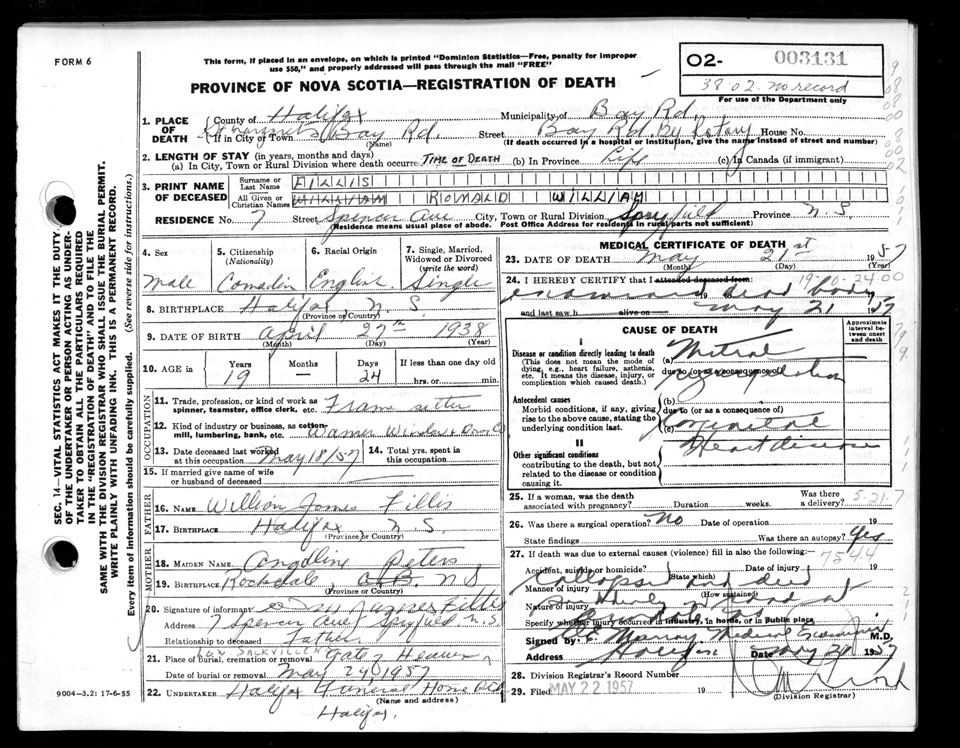 FORM 6
This form, if placed in an envelope, on which is printed "Dominion Statistics—Free, penalty for improper
use $50," and properly addressed will pass through the mail "FREE"
PROVINCE OF NOVA SCOTIA—REGISTRATION OF DEATH
02- 003131
38·02. no record
For use of the Department only
1. PLACE OF DEATH
County of Halifax Municipality of Bay Rd.
If in City or Town St Margarets Bay Rd. (Name) Street Bay Rd. by Rotary House No.
(If death occurred in a hospital or institution, give the name instead of street and number)
2. LENGTH OF STAY (in years, months and days)
(a) In City, Town or Rural Division where death occurred TIME OF DEATH (b) In Province Life (c) In Canada (if immigrant)
3. PRINT NAME OF DECEASED
Surname or Last Name FILLIS
All Given or Christian Names WILLIAM RONALD WILLIAM
RESIDENCE No. 7 Street Spencer Ave City, Town or Rural Division Spryfield Province N.S.
(Residence means usual place of abode. Post Office Address for residents in rural parts not sufficient)
4. Sex
male
5. Citizenship (Nationality)
6. Racial Origin
English
7. Single, Married, Widowed or Divorced (write the word)
Single
8. BIRTHPLACE Halifax N.S.
(Province or Country)
9. DATE OF BIRTH April 27th 1938
(Month) (Day) (Year)
10. AGE in
Years 19
Months —
Days 24
If less than one day old
hrs. or min.
OCCUPATION
11. Trade, profession, or kind of work as spinner, teamster, office clerk, etc. Fram sitter
12. Kind of industry or business, as cotton mill, lumbering, bank, etc. Window
13. Date deceased last worked at this occupation May 18/57
14. Total yrs. spent in this occupation
15. If married give name of wife or husband of deceased
FATHER
16. NAME William James Fillis
17. BIRTHPLACE Halifax, N.S.
(Province or Country)
MOTHER
18. MAIDEN NAME Peters
19. BIRTHPLACE Rockdale, C.B. N.S.
(Province or Country)
20. Signature of informant James Fillis
Address 7 Spencer Ave Spryfield N.S.
Relationship to deceased Father
LOW. SACKVILLE N
21. Place of burial, cremation or removal Gate of Heaven
Date of burial or removal May 24, 1957
22. UNDERTAKER Halifax Funeral Home
(Name and address)
Halifax.
MEDICAL CERTIFICATE OF DEATH
23. DATE OF DEATH May 21st 1957
(Month) (Day) (Year)
24. I HEREBY CERTIFY that I attended deceased from: 19-06-24.00
examined dead body
and last saw h alive on May 21 1957
CAUSE OF DEATH
Approximate interval between onset and death
I
Disease or condition directly leading to death
(This does not mean the mode of dying, e.g., heart failure, asthenia, etc. It means the disease, injury, or complication which caused death.)
(a) Mitral
due to (or as a consequence of)
regurgitation
Antecedent causes
Morbid conditions, if any, giving rise to the above cause, stating the underlying condition last.
(b)
due to (or as a consequence of)
(c)
II
Other significant conditions
contributing to the death, but not related to the disease or condition causing it.
Heart disease
25. If a woman, was the death associated with pregnancy? Duration weeks. Was there a delivery? 5-21-7
26. Was there a surgical operation? No Date of operation 19
State findings Was there an autopsy? Yes
27. If death was due to external causes (violence) fill in also the following:— 754.4
Accident, suicide or homicide? (State which) Date of injury 19
Manner of injury Collapsed and died (How sustained)
Nature of injury
Specify whether injury occurred in industry, in home, or in public place
Signed by: Murray Medical Examiner M.D.
Address Halifax Date May 21 1957
28. Division Registrar's Record Number
29. Filed MAY 22 1957 19
(Division Registrar)
SEC. 14—VITAL STATISTICS ACT MAKES IT THE DUTY
OF THE UNDERTAKER OR PERSON ACTING AS UNDER-
TAKER TO OBTAIN ALL THE PARTICULARS REQUIRED
IN THE "REGISTRATION OF DEATH" AND TO FILE THE
SAME WITH THE DIVISION REGISTRAR WHO SHALL ISSUE THE BURIAL PERMIT.
WRITE PLAINLY WITH UNFADING INK. THIS IS A PERMANENT RECORD.
Every item of information should be carefully supplied. (See reverse side for instructions.)
9004-3.2: 17-6-55